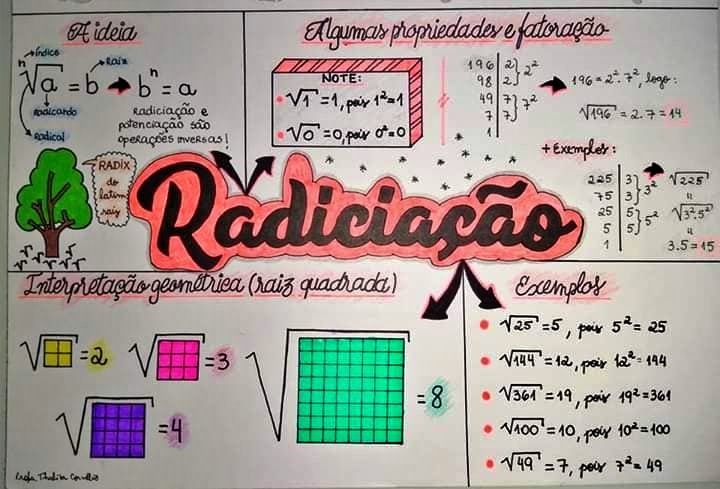 A ideia
índice
Raiz
n√a = b ➡ bⁿ = a
radicando
radical
Radiciação e
potenciação são
operações inversas!
RADIX
do
latim
raiz
Algumas propriedades e fatoração
NOTE:
• √1 = 1, pois 1² = 1
• √0 = 0, pois 0² = 0
196 | 2
98 | 2 } 2²
49 | 7
7 | 7 } 7²
1
196 = 2² . 7², logo:
√196 = 2 . 7 = 14
+ Exemplos:
225 | 3
75 | 3 } 3²
25 | 5
5 | 5 } 5²
1
√225
"
√3².5²
"
3.5 = 15
Radiciação
Interpretação geométrica (raiz quadrada)
√ = 2
√ = 3
√ = 4
√ = 8
Exemplos
• √25 = 5, pois 5² = 25
• √144 = 12, pois 12² = 144
• √361 = 19, pois 19² = 361
• √100 = 10, pois 10² = 100
• √49 = 7, pois 7² = 49
Profa.